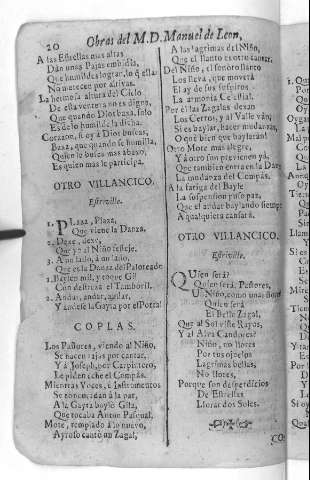 20 Obras del M.D. Manuel de Leon,
A las Estrellas mas altas
Dàn unas Pajas embidia,
Que humildes lograr, lo q̃ ellas
No merecen por altivas.
La hermosa altura del Cielo
De esta ventura no es digna,
Que quando Dios baxa, solo
Es de lo humilde la dicha.
Corazon, si oy à Dios buscas,
Baxa, que quando se humilla,
Quien le busca mas abaxo,
Es quien mas le participa.
OTRO VILLANCICO.
Estrivillo.
1. PLaza, Plaza,
Que viene la Danza,
2. Dexe, dexe,
Que yo al Niño festeje.
3. A un lado, à un lado,
Que es la Danza del Paloteado
1. Baylen mil, y toque Gil
Con destreza el Tamboril.
2. Andar, andar, agudar,
Y andese la Gayta por el Portal
COPLAS.
Los Pastores, viendo al Niño,
Se hacen rajas por cantar,
Y à Joseph, por Carpintero,
Le piden eche el Compàs.
Mientras Voces, è Instrumentos
Se concuerdan à la par,
A la Gayta baylò Gila,
Que tocaba Anton Pasqual.
Mote, templado à lo nuevo,
Ayroso cantò un Zagal,
A las lagrimas del Niño,
Que el llanto es otro cantar.
Del Niño, el sonoro llanto
Los lleva, que moverà
El ay de sus suspiros
La armonia Celestial.
Por èl las Zagalas dexan
Los Cerros, y al Valle vàn;
Si es baylar, hacer mudanzas,
O què bien que baylaràn!
Otro Mote mas alegre,
Y à otro son previenen yà,
Que tambien entra en la Danza
La mudanza del Compàs.
A la fatiga del Bayle
La suspension puso paz,
Que el andar baylando siempre
A qualquiera cansarà.
OTRO VILLANCICO.
Estrivillo.
QUien serà?
Quien serà, Pastores,
Un Niño, como unas flores
Quien serà
El Bello Zagal,
Que al Sol viste Rayos,
Y al Alva Candores?
Niño, no llores
Por tus ojuelos
Lagrimas bellas,
No llores,
Porque son desperdicios
De Estrellas
Llorar dos Soles.
CO-